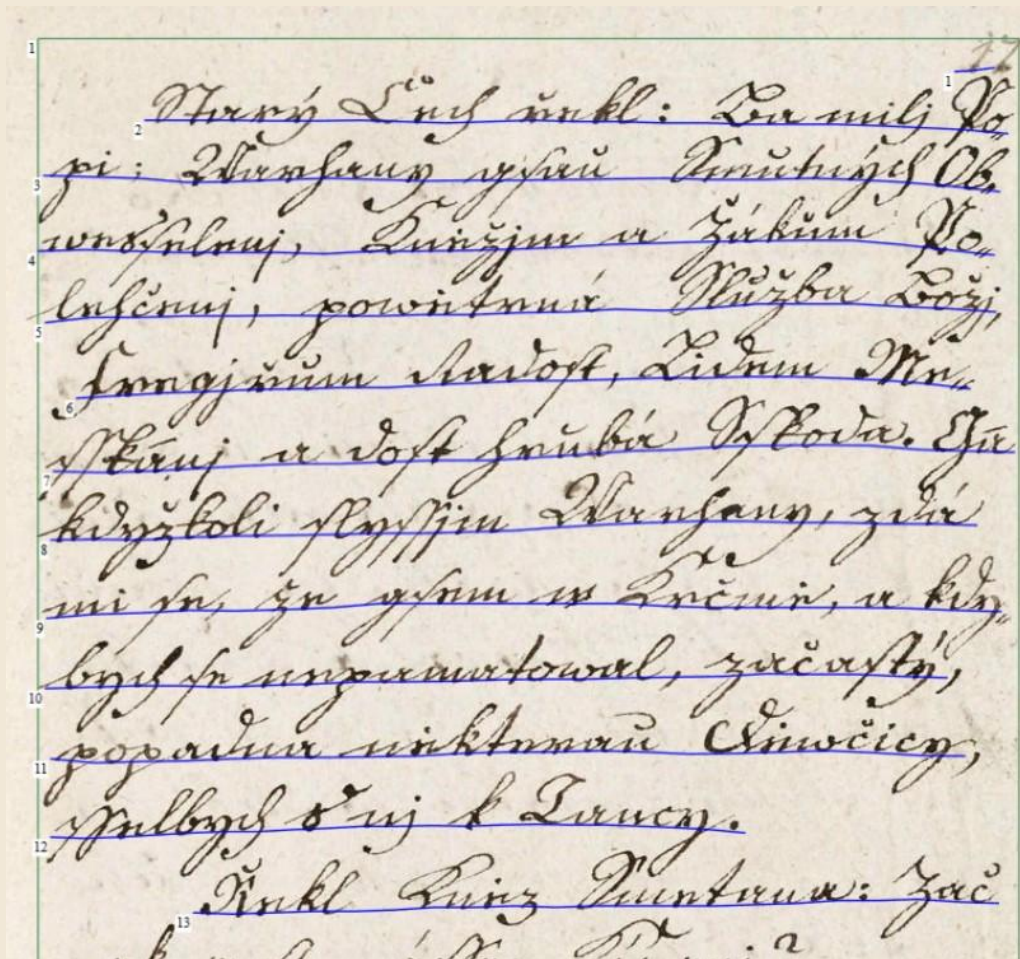 17
Starý Čech rekl: Ba milj Po-
pi: Warhany gsau Smutných Ob-
wesselenj, Kniežjm a Žákum Po-
lehčenj, powětrná Služba Božj,
Fregjrum Radost, Lidem Me-
sskánj a dost hrubá Sskoda. Gá
kdyžkoli slyssjm Warhany, zdá
mi se, že gsem w Krčmě, a kdy-
bych se nepamatowal, začastý,
popadna niekterau Diwočicy,
sselbych s nj k Tancy.
Řekl Kniez Smetana: Zač